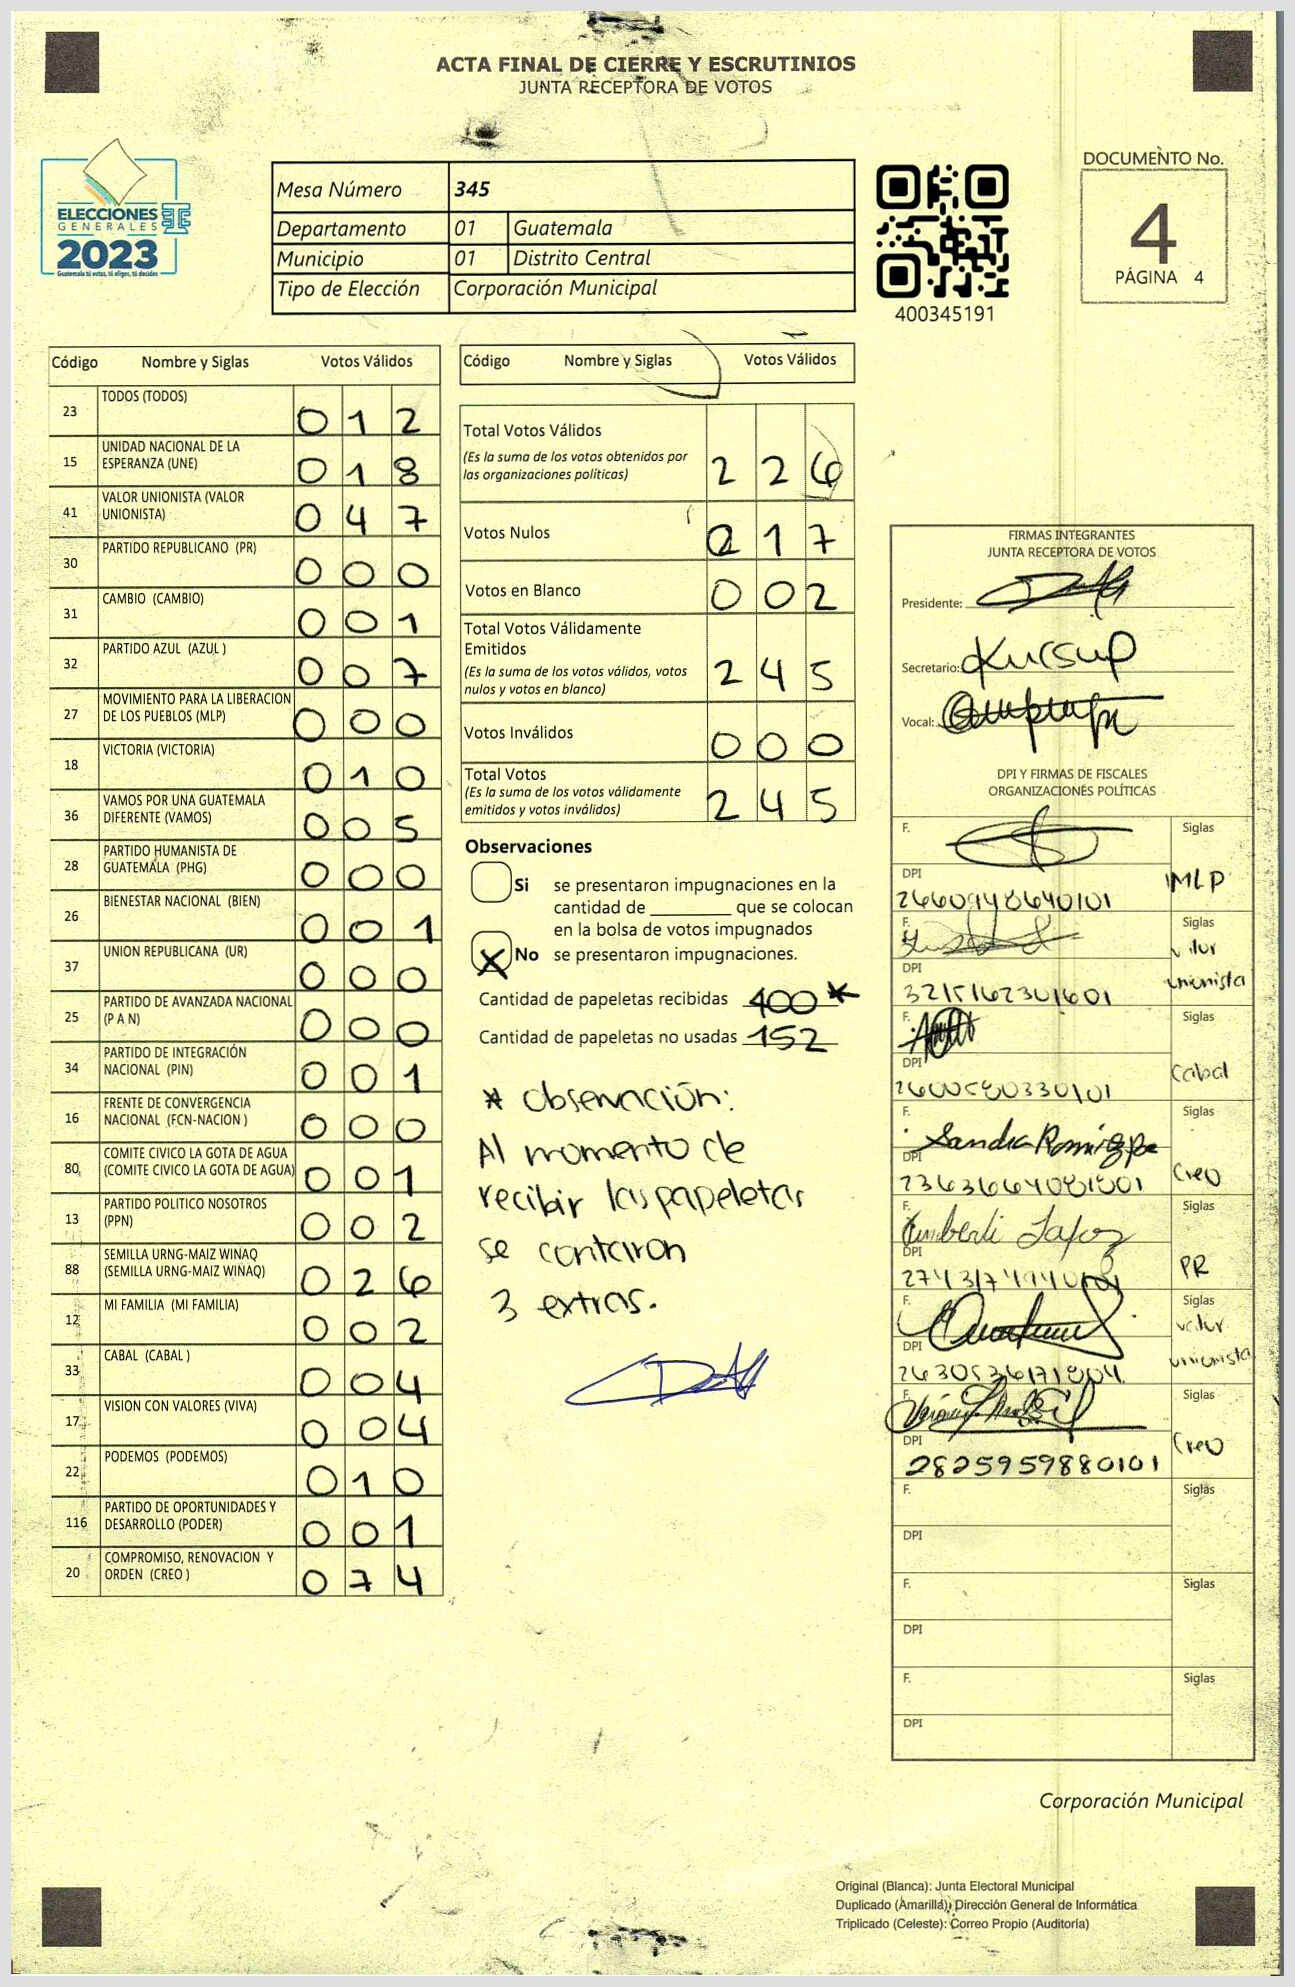 ACTA FINAL DE CIERRE Y ESCRUTINIOS
JUNTA RECEPTORA DE VOTOS
ELECCIONES
GENERALES
2023
Guatemala tú votas, tú eliges, tú decides
Mesa Número 345
Departamento 01 Guatemala
Municipio 01 Distrito Central
Tipo de Elección Corporación Municipal
400345191
DOCUMENTO No.
4
PÁGINA 4
Código Nombre y Siglas Votos Válidos
23 TODOS (TODOS) 0 1 2
15 UNIDAD NACIONAL DE LA
ESPERANZA (UNE) 0 1 8
41 VALOR UNIONISTA (VALOR
UNIONISTA) 0 4 7
30 PARTIDO REPUBLICANO (PR) 0 0 0
31 CAMBIO (CAMBIO) 0 0 1
32 PARTIDO AZUL (AZUL ) 0 0 7
27 MOVIMIENTO PARA LA LIBERACION
DE LOS PUEBLOS (MLP) 0 0 0
18 VICTORIA (VICTORIA) 0 1 0
36 VAMOS POR UNA GUATEMALA
DIFERENTE (VAMOS) 0 0 5
28 PARTIDO HUMANISTA DE
GUATEMALA (PHG) 0 0 0
26 BIENESTAR NACIONAL (BIEN) 0 0 1
37 UNION REPUBLICANA (UR) 0 0 0
25 PARTIDO DE AVANZADA NACIONAL
(P A N) 0 0 0
34 PARTIDO DE INTEGRACIÓN
NACIONAL (PIN) 0 0 1
16 FRENTE DE CONVERGENCIA
NACIONAL (FCN-NACION ) 0 0 0
80 COMITE CIVICO LA GOTA DE AGUA
(COMITE CIVICO LA GOTA DE AGUA) 0 0 1
13 PARTIDO POLITICO NOSOTROS
(PPN) 0 0 2
88 SEMILLA URNG-MAIZ WINAQ
(SEMILLA URNG-MAIZ WINAQ) 0 2 6
12 MI FAMILIA (MI FAMILIA) 0 0 2
33 CABAL (CABAL ) 0 0 4
17 VISION CON VALORES (VIVA) 0 0 4
22 PODEMOS (PODEMOS) 0 1 0
116 PARTIDO DE OPORTUNIDADES Y
DESARROLLO (PODER) 0 0 1
20 COMPROMISO, RENOVACION Y
ORDEN (CREO ) 0 7 4
Código Nombre y Siglas Votos Válidos
Total Votos Válidos
(Es la suma de los votos obtenidos por
las organizaciones políticas) 2 2 6
Votos Nulos 0 1 7
Votos en Blanco 0 0 2
Total Votos Válidamente
Emitidos
(Es la suma de los votos válidos, votos
nulos y votos en blanco) 2 4 5
Votos Inválidos 0 0 0
Total Votos
(Es la suma de los votos válidamente
emitidos y votos inválidos) 2 4 5
Observaciones
Si se presentaron impugnaciones en la
cantidad de ________ que se colocan
en la bolsa de votos impugnados
X No se presentaron impugnaciones.
Cantidad de papeletas recibidas 400 *
Cantidad de papeletas no usadas 152
* Observación:
Al momento de
recibir las papeletas
se contaron
3 extras.
FIRMAS INTEGRANTES
JUNTA RECEPTORA DE VOTOS
Presidente:
Secretario:
Vocal:
DPI Y FIRMAS DE FISCALES
ORGANIZACIONES POLÍTICAS
F. Siglas
DPI MLP
F. Siglas
DPI valor
unionista
F. Siglas
DPI Cabal
F. Sandra Siglas
DPI Creo
F. Siglas
DPI PR
F. Siglas
DPI valor
unionista
F. Siglas
DPI Creo
2825959880101
F. Siglas
DPI
F. Siglas
DPI
F. Siglas
DPI
Corporación Municipal
Original (Blanca): Junta Electoral Municipal
Duplicado (Amarilla): Dirección General de Informática
Triplicado (Celeste): Correo Propio (Auditoría)